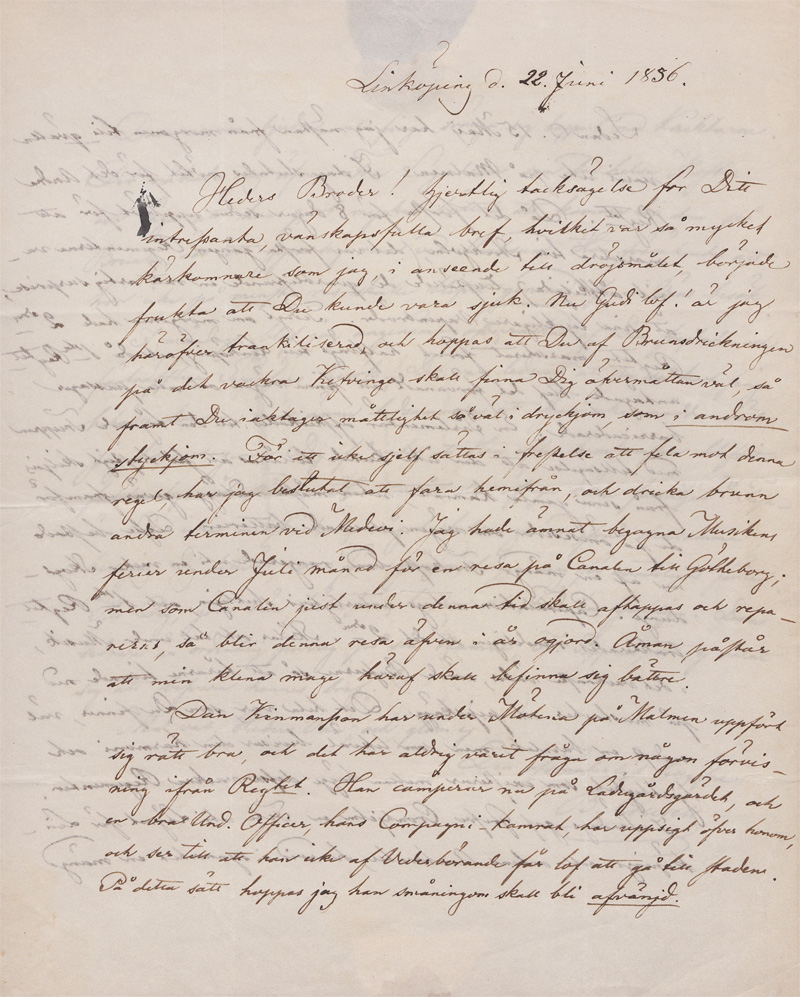 Linköping d. 22. Juni 1836.
Heders Broder! Hjertlig tacksägelse för Ditt
intressanta, vänskapsfulla bref, hvilket var så mycket
kärkomnare som jag, i anseende till dröjsmålet, började
frukta att Du kunde vara sjuk. Nu Gudi lof! är jag
häröfver trankiliserad, och hoppas att Du af Brunsdrickningen
på det vackra Kefvinge skall finna Dig öfvermåttan väl, så
framt Du iakttager måttlighet såväl i dryckjom, som i androm
styckjom. För att icke sjelf sättas i frestelse att fela mot denna
regel, har jag beslutat att fara hemifrån, och dricka brunn
andra terminen vid Medevi. Jag hade ämnat begagna Musikens
ferier under Juli månad för en resa på Canalen till Götheborg;
men som Canalen just under denna tid skall aftappas och repa-
reras, så blir denna resa äfven i år ogjord. Åman påstår
att min klena mage häraf skall befinna sig bättre.
Dan Kinmansson har under Mötena på Malmen uppfört
sig rätt bra, och det har aldrig varit fråga om någon förvis-
ning ifrån Regtet. Han camperar nu på Ladugårdsgärdet, och
en bra Und. Officer, hans Compagni-kamrat, har uppsigt öfver honom,
och ser till att han icke af Vederbörande får lof att gå till staden.
På detta sätt hoppas jag han småningom skall bli afvänjd.